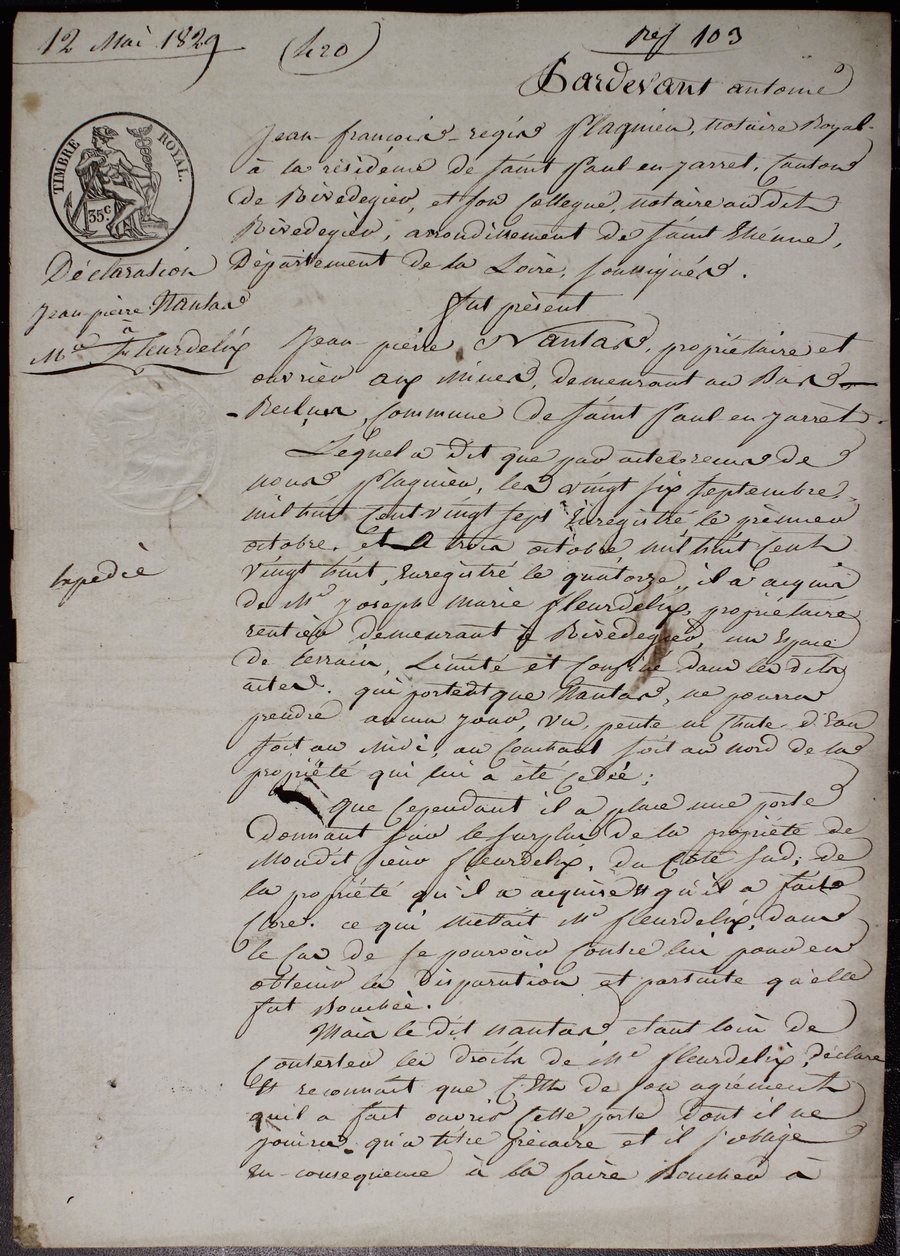 12 Mai 1829
(420)
ref 103
Pardevant antoine
Jean-françois-regis flagnieu, notaire Royal
à la résidence de saint Paul en jarret, Canton
de Rivedegier, et son Collegue, notaire au dit
Rivedegier, arrondissement de saint Etienne,
Département de la Loire, soussignés.
TIMBRE ROYAL.
35c
Déclaration
Jean-pierre Nantas
à
Mr fleurdelix
fut présent
Jean-pierre Nantas, propriétaire et
ouvrier aux mines, demeurant au Bas
Reclus, Commune de saint Paul-en-jarret.
Lequel a dit que par actes reçus de
nous flagnieu, les vingt six septembre
mil huit Cent vingt sept, Enregistré le premier
octobre, et le trois octobre mil huit Cent
vingt huit, Enregistré le quatorze, il a acquis
Expedié
de Mr Joseph Marie fleurdelix, propriétaire
rentier demeurant à Rivedegier, un Espace
de terrain, Limité et Confiné dans les dits
actes. qui portent que Nantas, ne pourra
prendre aucun jour, vu, pente ni chute d'Eau
soit au midi, au Couchant soit au nord de la
propriété qui lui a été Cedée;
Que Cependant il a placé une porte
Donnant sur le surplus de la propriété de
Mondit sieur fleurdelix, du Coté sud, de
la propriété qu'il a acquise & qu'il a fait
Clore. ce qui mettait Mr fleurdelix, dans
le Cas de se pourvoir Contre lui pour en
obtenir la disparution et parsuite qu'elle
fut Bouchée.
Mais le dit nantas etant loin de
Contester les droits de Mr fleurdelix, Déclare
Et reconnait que C'Est de son agrément
qu'il a fait ouvrir Cette porte dont il ne
jouira qu'a titre précaire et il s'oblige
En-consequence à la faire Boucher à